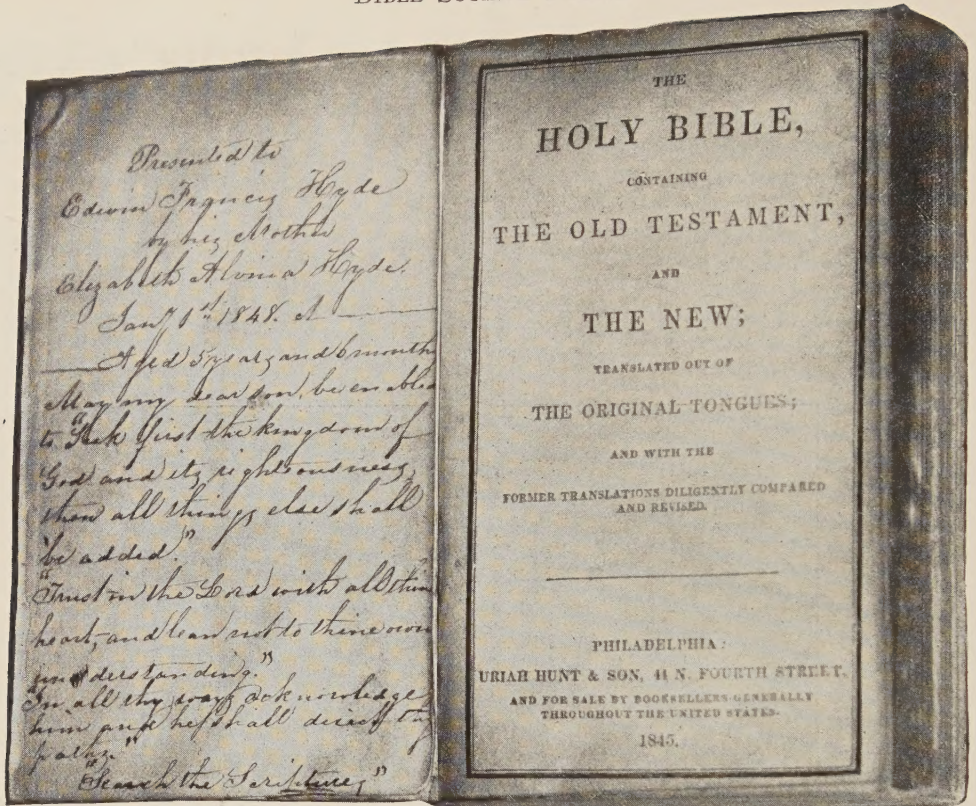 Presented to
Edwin Francis Hyde
by his Mother
Elizabeth Alvina Hyde.
Jany 1st 1848.
Aged 5 years and 6 months
May my dear son, be enabled
to "Seek first the kingdom of
God and its righteousness,
then all things else shall
be added."
"Trust in the Lord with all thine
heart, and lean not to thine own
understanding."
"In all thy ways acknowledge
him and he shall direct thy
paths."
"Search the Scriptures"
THE
HOLY BIBLE,
CONTAINING
THE OLD TESTAMENT,
AND
THE NEW;
TRANSLATED OUT OF
THE ORIGINAL TONGUES;
AND WITH THE
FORMER TRANSLATIONS DILIGENTLY COMPARED
AND REVISED.
PHILADELPHIA:
URIAH HUNT & SON, 44 N. FOURTH STREET,
AND FOR SALE BY BOOKSELLERS GENERALLY
THROUGHOUT THE UNITED STATES.
1845.